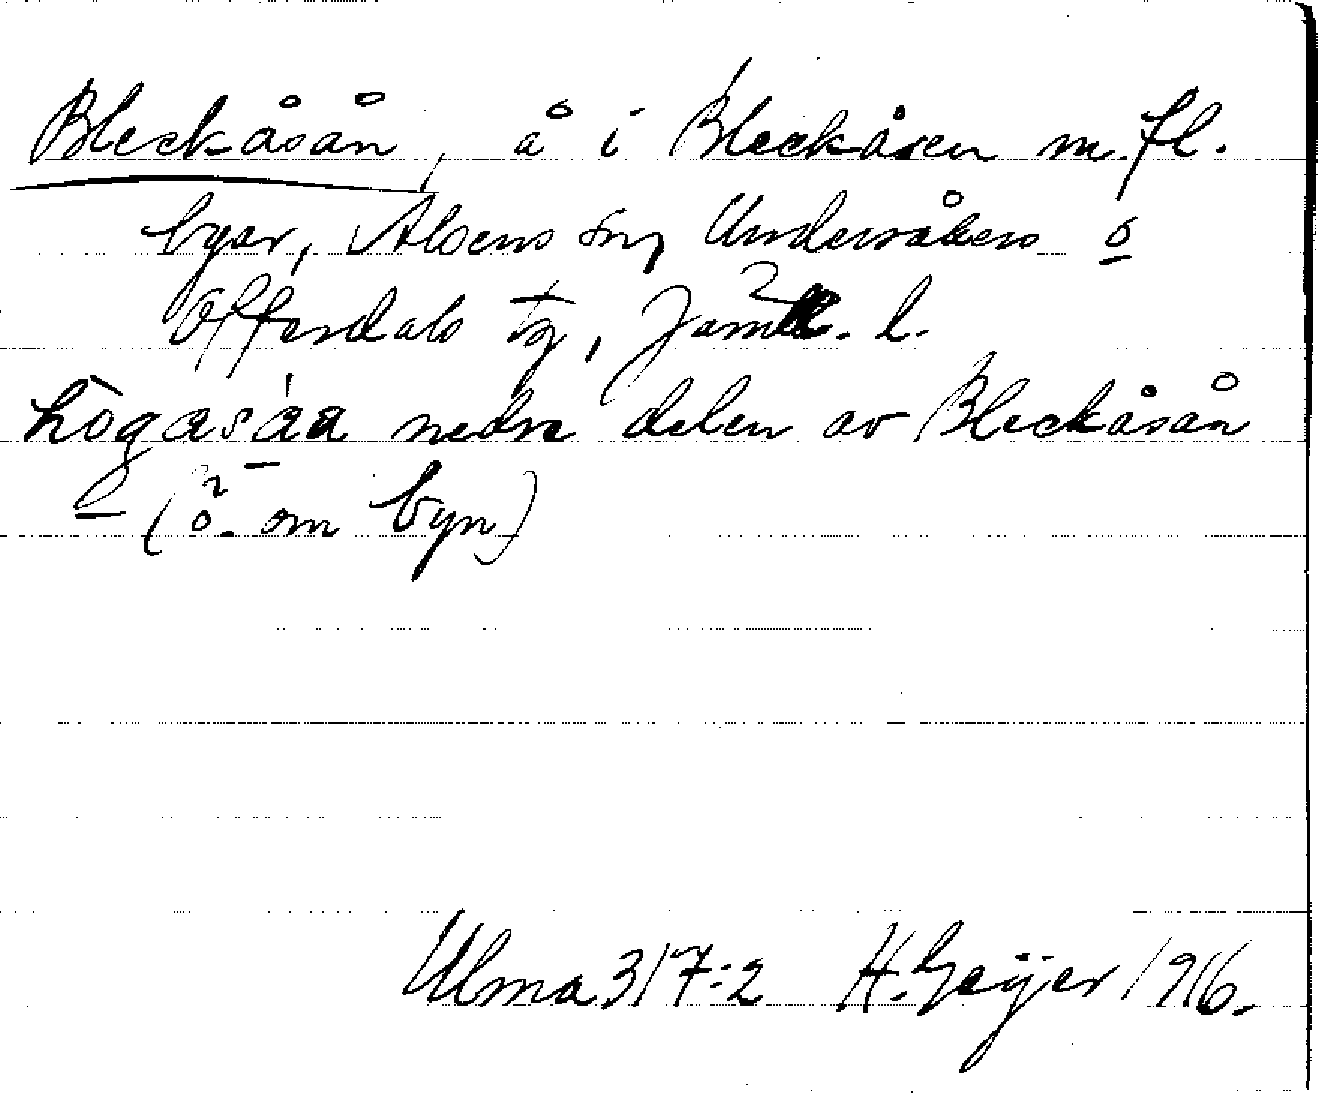 Bleckåsån, å i Bleckåsen m.fl.
byar, Alsens sn, Undersåkers o
Offerdals tg, Jämtl. l.
högasáa nedre delen av Bleckåsån
(ö. om byn)
Ulma 317:2 H. Geijer 1916.